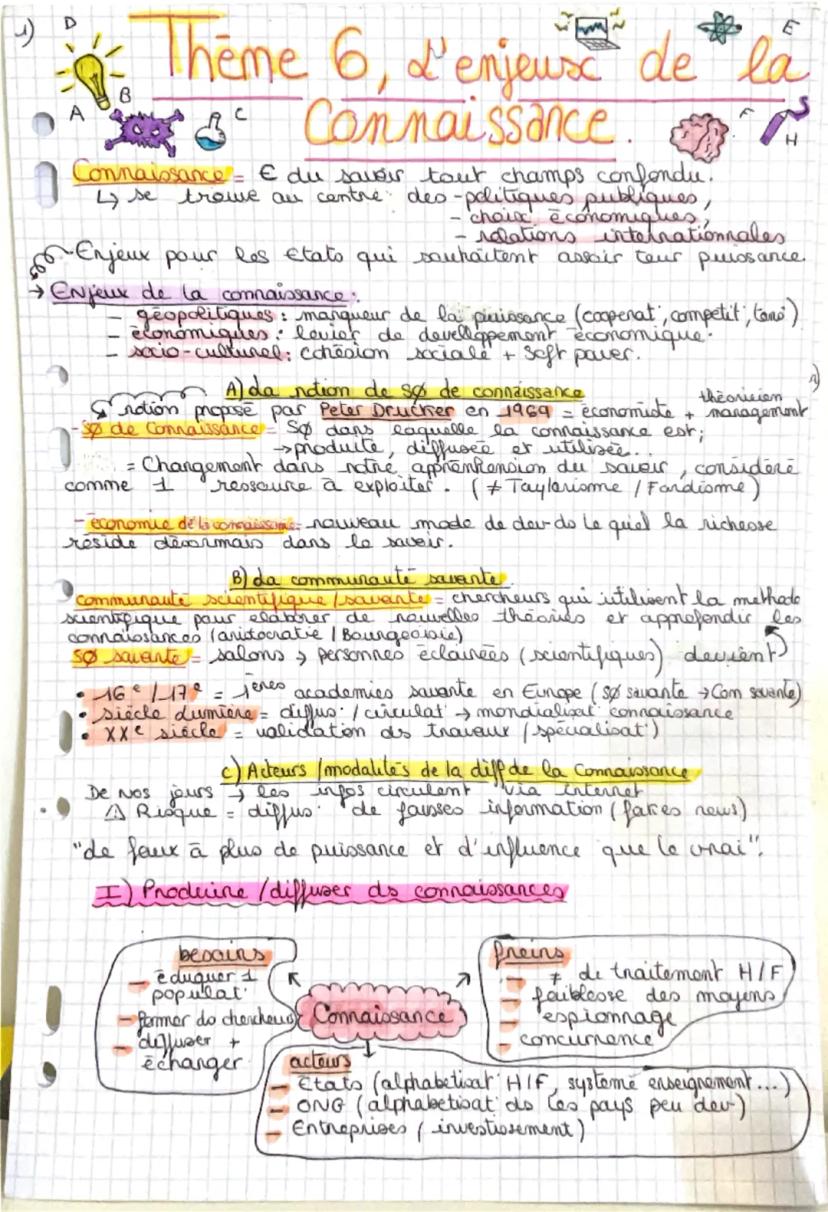 1)
D
E
Thème 6, L'enjeux de la
A
B
C
F
H
Connaissance.
Connaissance = € du savoir tout champs confondu.
↳ se trouve au centre des - politiques publiques,
- choix économiques,
- relations internationnales
Enjeux pour les Etats qui souhaitent assoir leur puissance.
→ Enjeux de la connaissance:
- géopolitiques : marqueur de la puissance (coopenat°, competit°, tens°)
- économiques : levier de developpement économique.
- socio-culturel : cohésion sociale + Soft power.
A) La notion de SØ de connaissance
notion propose par Peter Drucker en 1969 = économiste + théoricien management
- SØ de Connaissance = SØ dans laquelle la connaissance est ;
→ produite, diffusée et utilisée...
= Changement dans notre appréhension du savoir, considéré
comme 1 ressource à exploiter. (≠ Taylorisme / Fordisme)
- économie de la connaissance = nouveau mode de dev. ds le quel la richesse
réside désormais dans le savoir.
B) La communauté savante
communauté scientifique / savante = chercheurs qui utilisent la methode
scientifique pour élaborer de nouvelles théories et approfondir les
connaissances (aristocratie / Bourgeoisie)
SØ savante = salons → personnes éclairées (scientifiques) devient
• 16e / 17e = 1ères academies savante en Europe (SØ savante → Com savante)
• siècle Lumière = diffus° / circulat° → mondialisat° connaissance
• XXe siècle = validation ds travaux (spécialisat°)
C) Acteurs / modalités de la diff de la Connaissance
De nos jours → les infos circulent via internet
⚠ Risque = diffus° de fausses information (fakes news)
"de faux à plus de puissance et d'influence que le vrai".
I) Produire / diffuser ds connaissances
besoins
- éduquer 1
populat°
- former ds chercheurs
- diffuser +
échanger
Connaissance
freins
- ≠ de traitement H/F
- faiblesse des moyens
- espionnage
- concurrence
acteurs
- Etats (alphabetisat° H/F, système enseignement...)
- ONG (alphabetisat° ds les pays peu dev)
- Entreprises (investissement)